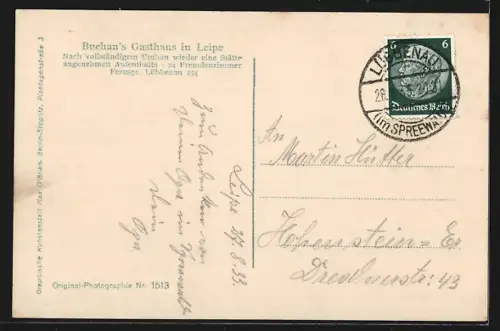 Buchan's Gasthaus in Leipe
Nach vollständigem Umbau wieder eine Stätte
angenehmen Aufenthalts - 24 Fremdenzimmer
Fernspr. Lübbenau 254
Graphische Kunstanstalt Max O'Brien, Berlin-Steglitz, Plantagenstraße 3
Original-Photographie Nr. 1513
Leipe 27.8.33.
Zum Andenken von
Deinem Opa im Spreewald
Dein
Opa
6 6
Deutsches Reich
LÜBBENAU
28.
(im SPREEWALD)
An
Martin Hütter
Hohenstein-Er.
Dresdnerstr. 43